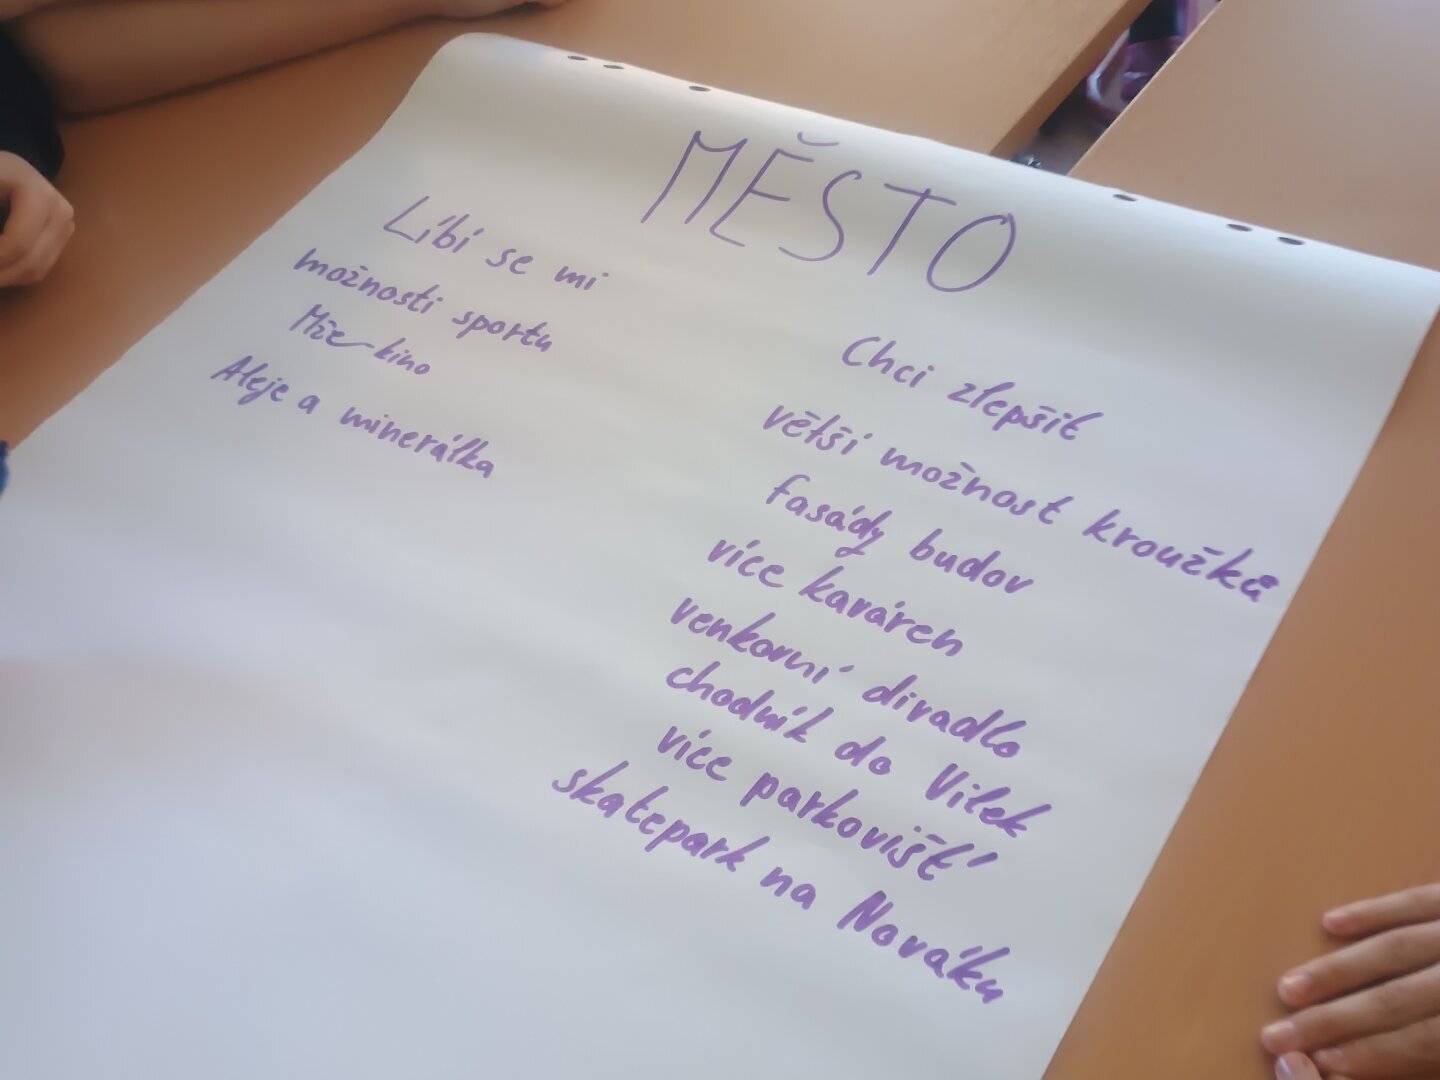 MĚSTO
Líbí se mi
možnosti sportu
Mže kino
Aleje a minerálka
Chci zlepšit
větší možnost kroužků
fasády budov
více kaváren
venkovní divadlo
chodník do Vítek
více parkovišť
skatepark na Nováku